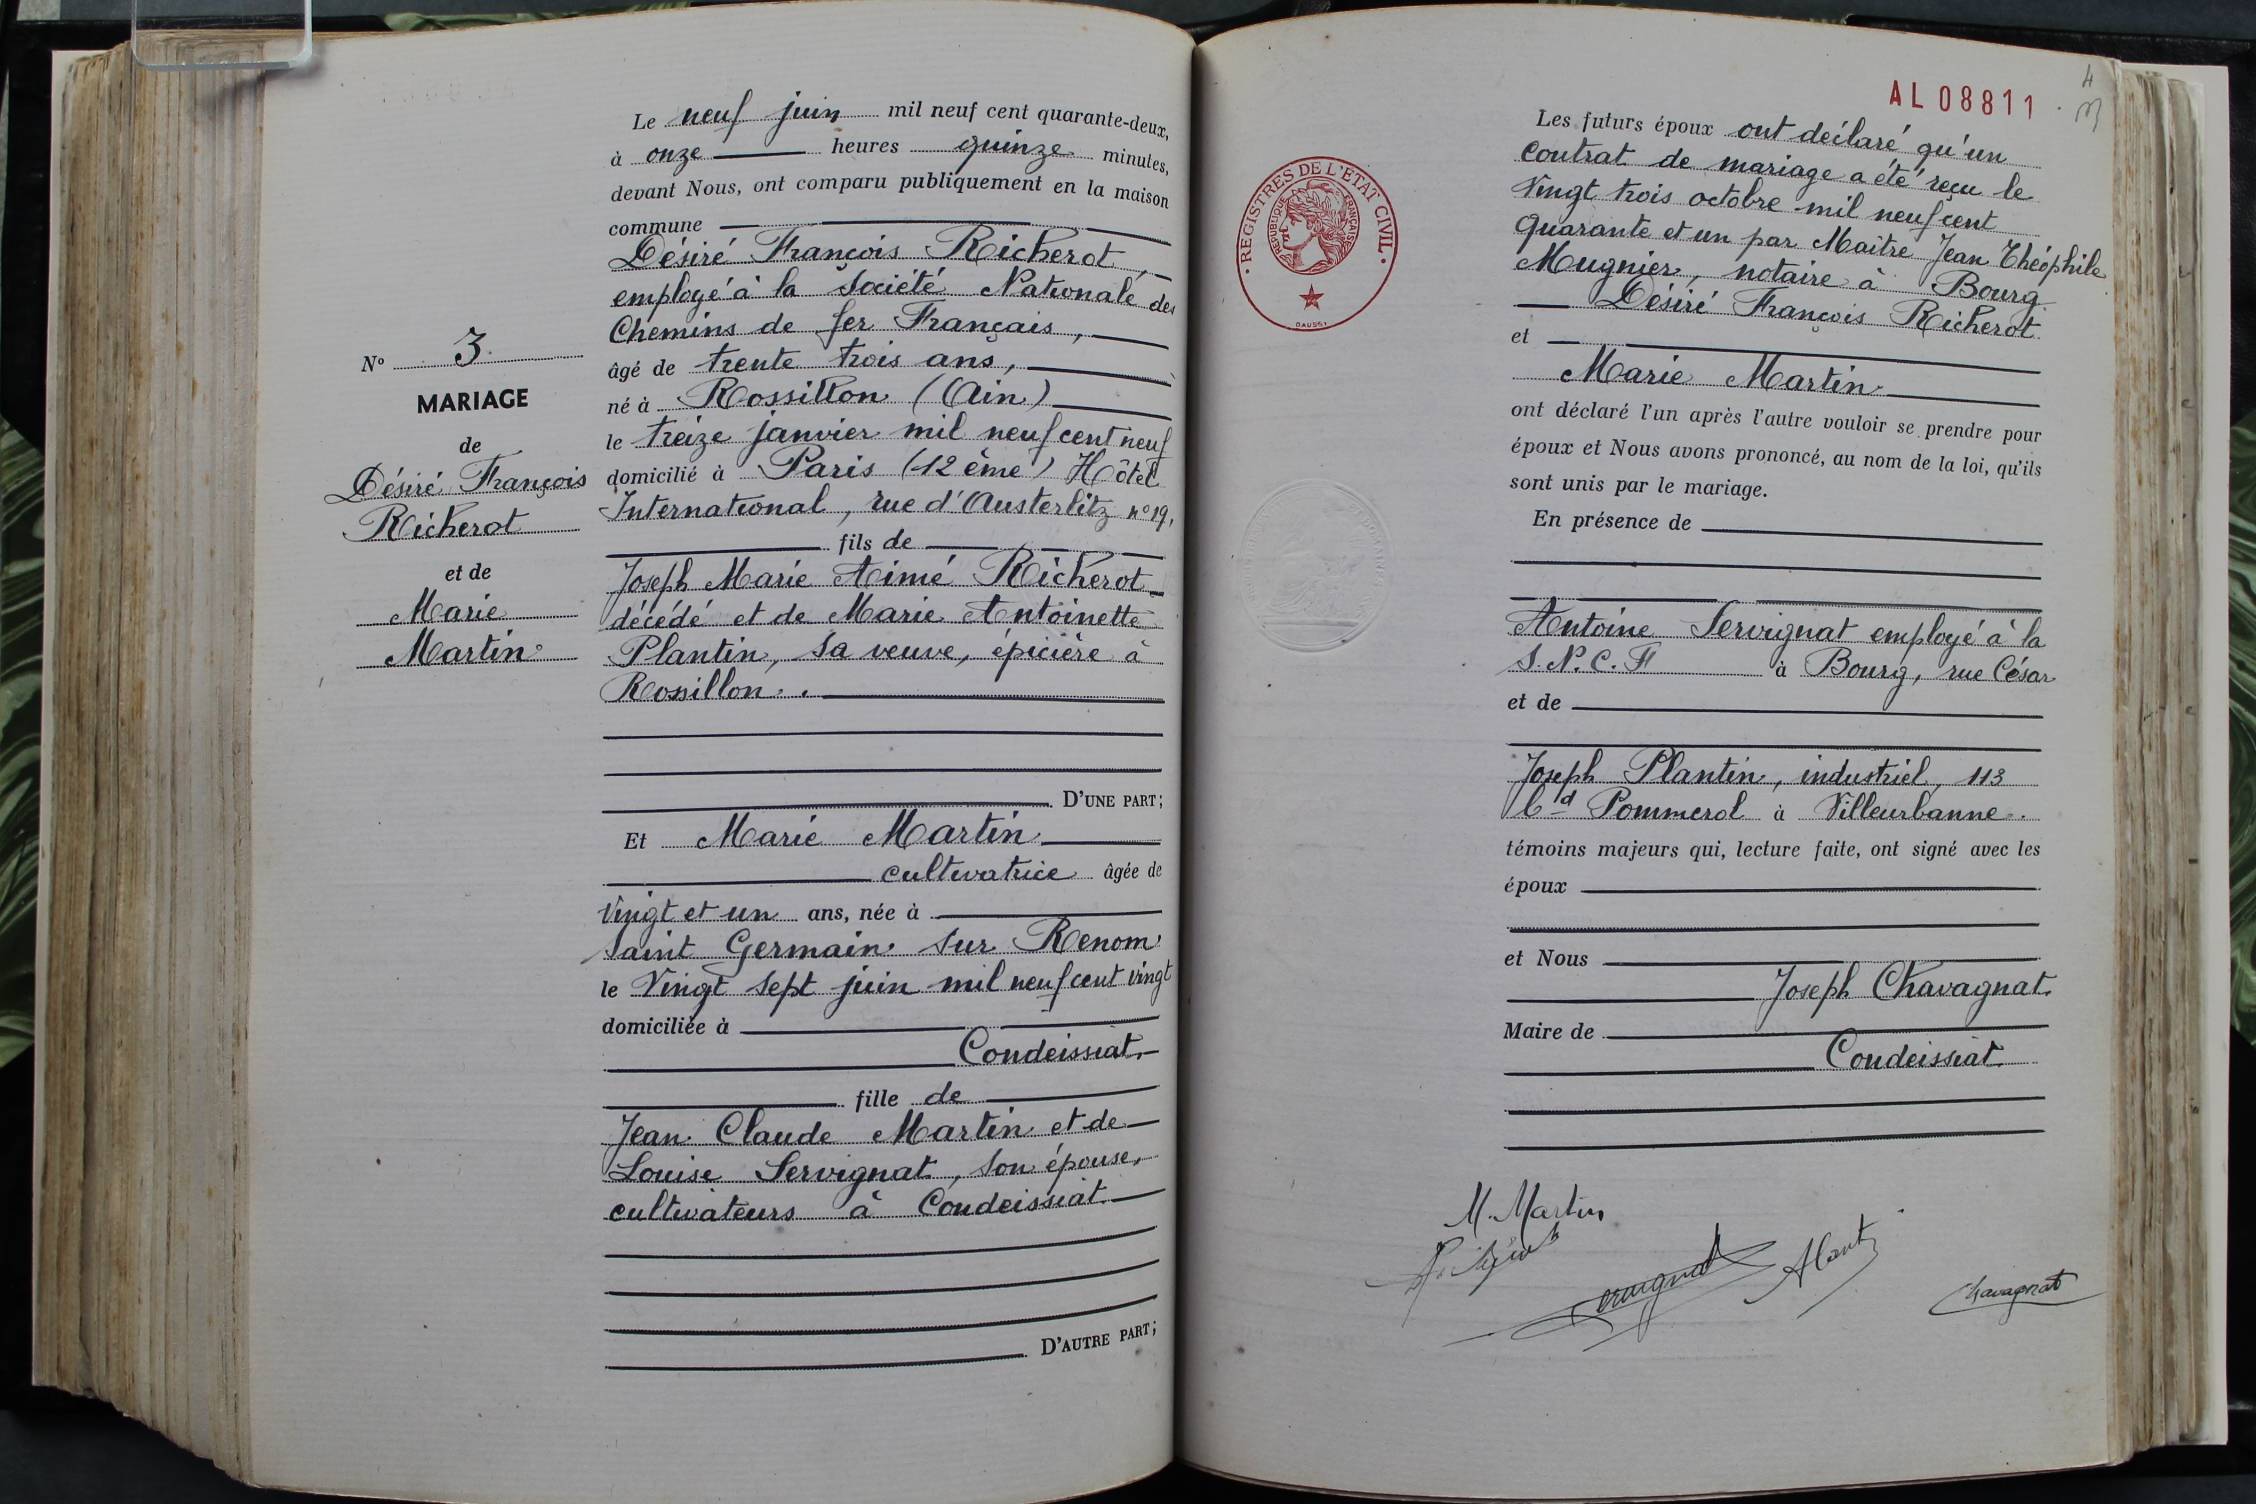 N° 3
MARIAGE
de
Désiré François
Richerot
et de
Marie
Martin
Le neuf juin mil neuf cent quarante-deux,
à onze heures quinze minutes,
devant Nous, ont comparu publiquement en la maison
commune
Désiré François Richerot,
employé à la Société Nationale des
Chemins de fer Français,
âgé de trente trois ans,
né à Rossillon (Ain)
le treize janvier mil neuf cent neuf
domicilié à Paris (12ème) Hôtel
International, rue d'Austerlitz n° 19,
fils de
Joseph Marie Aimé Richerot
décédé et de Marie Antoinette
Plantin, sa veuve, épicière à
Rossillon.
D'UNE PART;
Et Marie Martin
cultivatrice âgée de
Vingt et un ans, née à
Saint Germain sur Renom
le Vingt sept juin mil neuf cent vingt
domiciliée à
Condeissiat.
fille de
Jean Claude Martin et de
Louise Servignat, son épouse,
cultivateurs à Condeissiat.
D'AUTRE PART;
AL 08811
4
REGISTRES DE L'ETAT CIVIL
REPUBLIQUE FRANÇAISE
DAUSSY
Les futurs époux ont déclaré qu'un
contrat de mariage a été reçu le
Vingt trois octobre mil neuf cent
quarante et un par Maître Jean Théophile
Mugnier, notaire à Bourg
Désiré François Richerot
et
Marie Martin
ont déclaré l'un après l'autre vouloir se prendre pour
époux et Nous avons prononcé, au nom de la loi, qu'ils
sont unis par le mariage.
En présence de
Antoine Servignat employé à la
S.N.C.F à Bourg, rue César
et de
Joseph Plantin, industriel, 113
Bd Pommerol à Villeurbanne.
témoins majeurs qui, lecture faite, ont signé avec les
époux
et Nous
Joseph Chavagnat.
Maire de
Condeissiat.
M. Martin
Servignat
Chavagnat